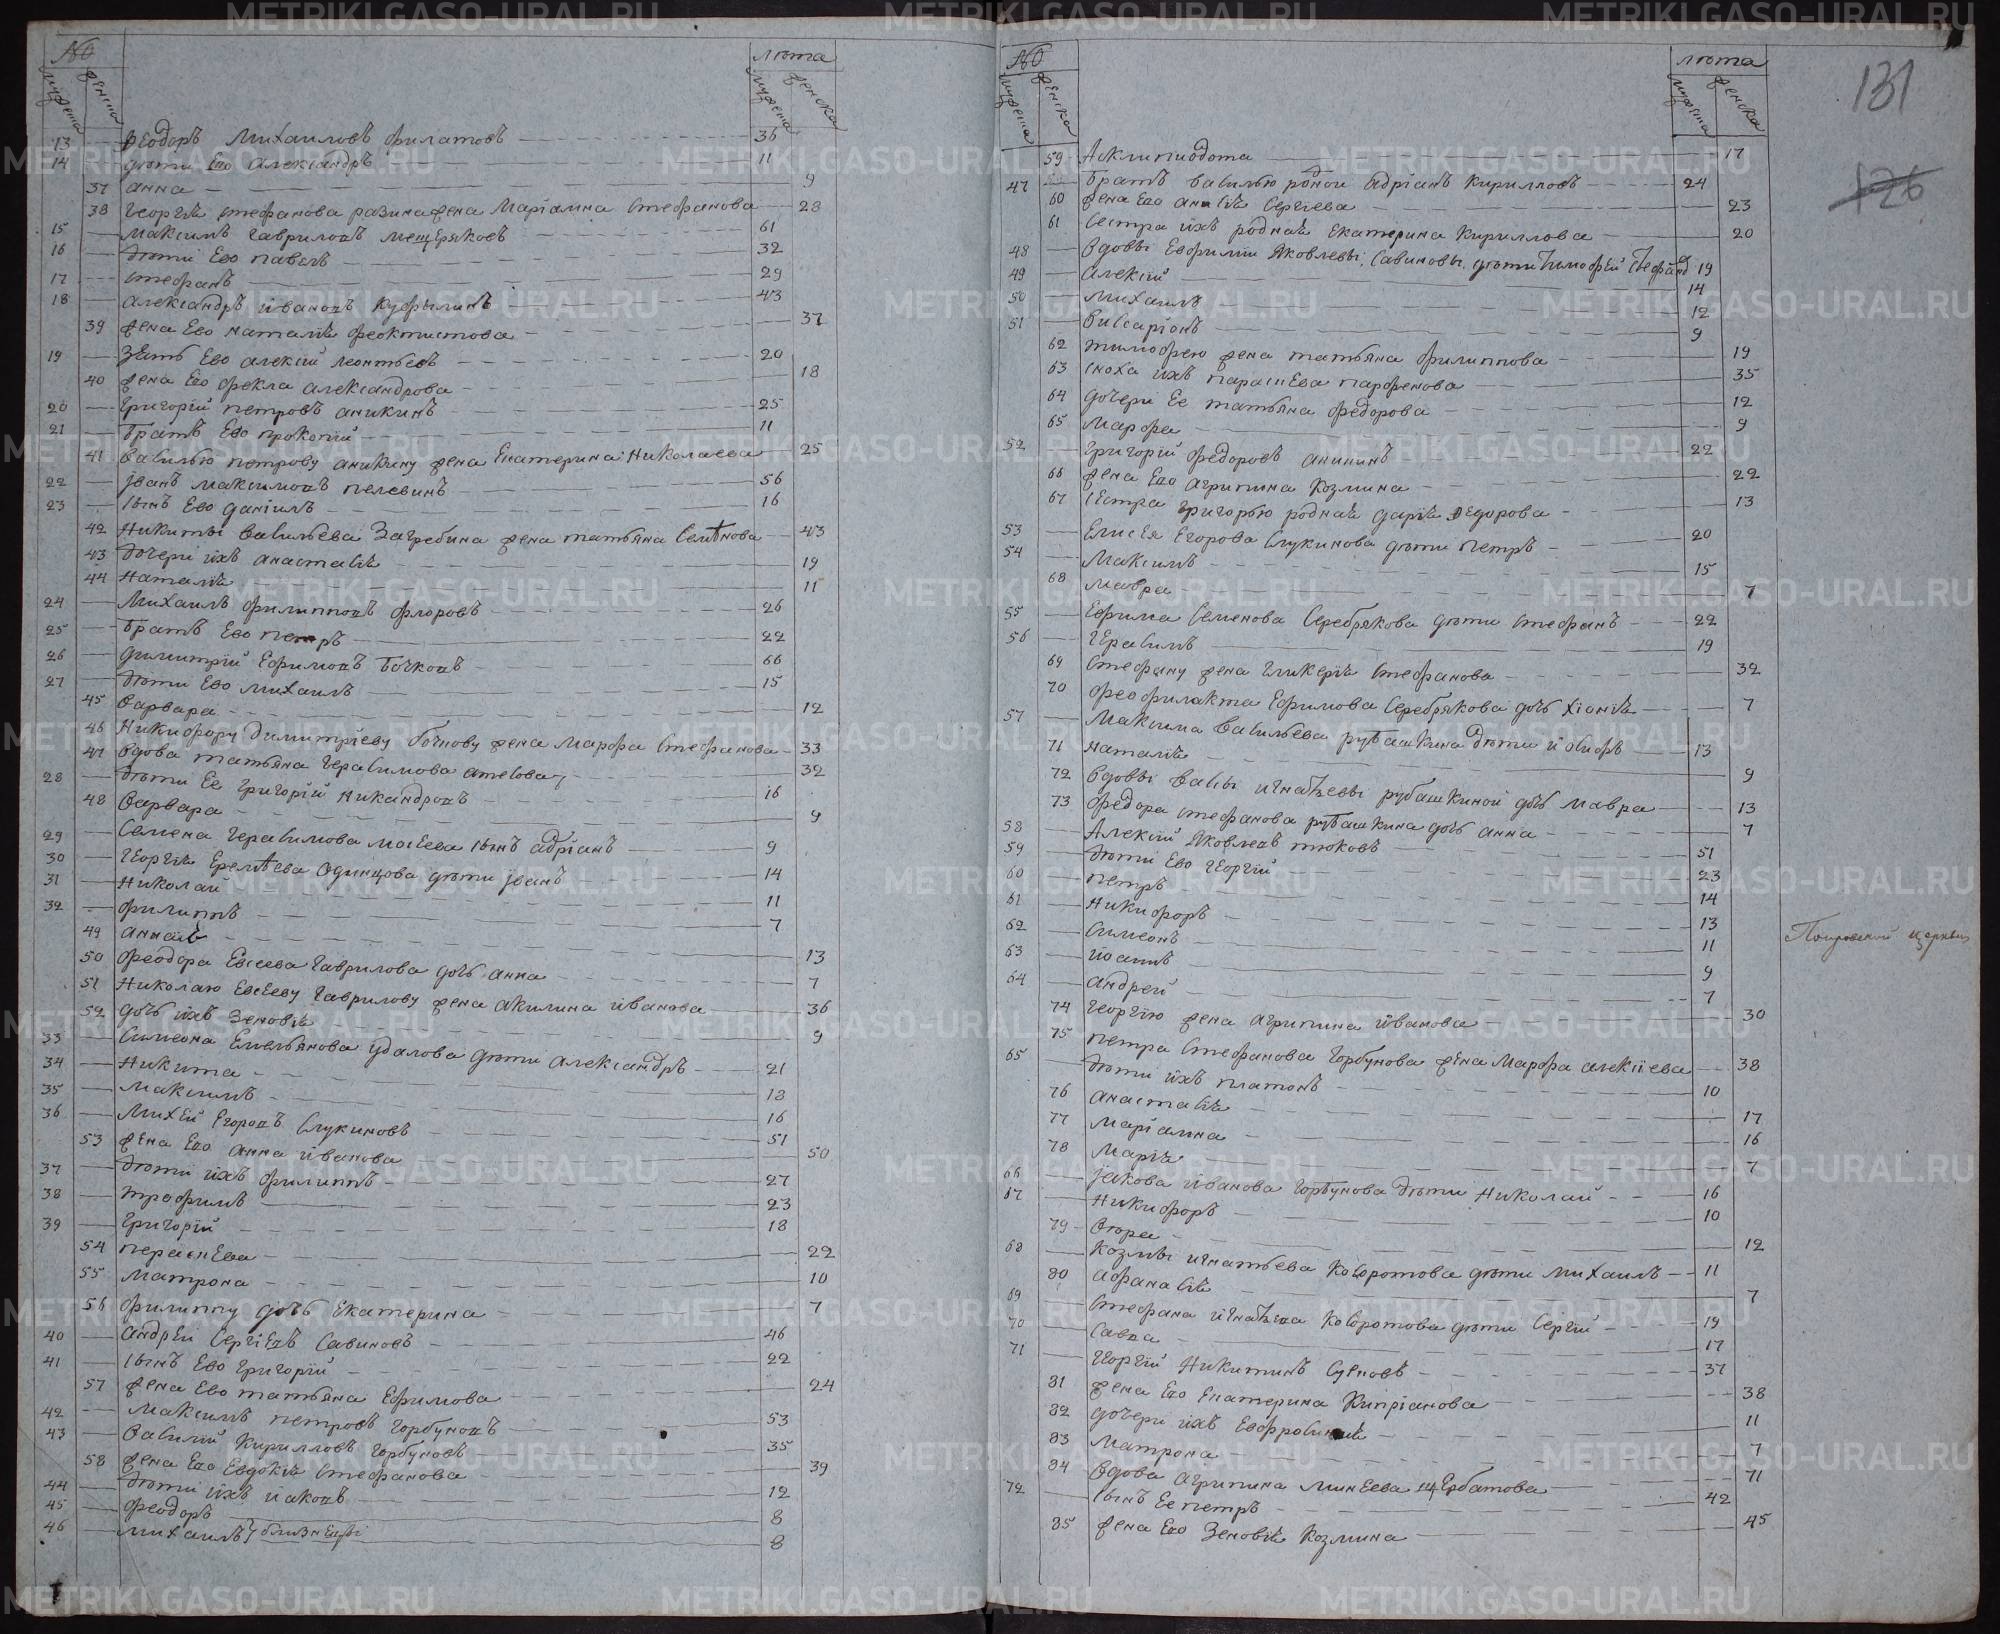 № лѣта
мужеска женска мужеска женска
13 Феодоръ Михаиловъ Филатовъ 36
14 дѣти Ево Александръ 11
37 анна 9
38 Георгія стефанова разина жена Маріамна Стефанова 28
15 Максимъ Гавриловъ мещеряковъ 61
16 дѣти Ево павелъ 32
17 стефанъ 29
18 Александръ ивановъ 43
39 жена Ево наталія феоктистова 37
19 зять Ево алексій леонтьевъ 20
40 жена Ево фекла александрова 18
20 Григорій петровъ аникинъ 25
21 братъ Ево прокопій 11
41 василью петрову аникину жена Екатерина Николаева 25
22 іванъ максимовъ пелевинъ 56
23 сынъ Ево даніилъ 16
42 Никиты васильева Загребина жена татьяна Семѣнова 43
43 дочери ихъ анастасія 19
44 наталія 11
24 Михаилъ филипповъ флоровъ 26
25 братъ Ево петръ 22
26 димитрій Ефимовъ бочковъ 66
27 дѣти Ево михаилъ 15
45 варвара 12
46 Никифору димитріеву бочкову жена марфа Стефанова 33
47 вдова татьяна Герасимова 32
28 дѣти Ее Григорій Никандровъ 16
48 варвара 9
29 Семена Герасимова мосеева сынъ адріанъ 9
30 Георгія Еремѣева Одинцова дѣти іванъ 14
31 николай 11
32 филиппъ 7
49 13
50 феодора Евсеева Гаврилова дочь анна 7
51 николаю Евсееву Гаврилову жена акилина иванова 36
52 дочь ихъ зеновія 9
33 Симеона Емельянова Удалова дѣти александръ 21
34 никита 18
35 максимъ 16
36 Михей Егоровъ Слукиновъ 51
53 жена Ево анна иванова 50
37 дѣти ихъ филиппъ 27
38 трофимъ 23
39 Григорій 18
54 22
55 матрона 10
56 филиппу дочь Екатерина 7
40 андрей Сергіевъ Савиновъ 46
41 сынъ Ево Григорій 22
57 жена Ево татьяна Ефимова 24
42 максимъ петровъ Горбуновъ 53
43 василій Кирилловъ Горбуновъ 35
58 жена Ево Евдокія Стефанова 39
44 дѣти ихъ иаковъ 12
45 феодоръ 8
46 михаилъ} близнецы 8
№ лѣта 131
мужеска женска мужеска женска 126
59 Асклипиодота 17
47 братъ василью родной адріанъ Кирилловъ 24
60 жена Ево анисія Сергіева 23
61 Сестра ихъ родная Екатерина Кириллова 20
48 вдовы Евфиміи Яковлевы Савиновы дѣти тимофей 19
49 алексій 14
50 михаилъ 12
51 виссаріонъ 9
62 тимофею жена татьяна филиппова 19
63 сноха ихъ параскева парфенова 35
64 дочери Ее татьяна федорова 12
65 марфа 9
52 Григорій федоровъ аникинъ 22
66 жена Ево агрипина Козмина 22
67 сестра григорью родная дарія федорова 13
53 Елисея Егорова Слукинова дѣти петръ 20
54 максимъ 15
68 мавра 7
55 Ефима Семенова Серебрякова дѣти стефанъ 22
56 Герасимъ 19
69 Стефану жена гликерія Стефанова 32
70 феофилакта Ефимова Серебрякова дочь хіонія 7
57 максима васильева рубашкина дѣти 13
71 наталія 9
72 вдовы вассы игнатьевы рубашкиной дочь мавра 13
73 федора стефанова рубашкина дочь анна 7
58 Алексій Яковлевъ тюковъ 51
59 дѣти Ево Георгій 23
60 петръ 14
61 никифоръ 13
62 симеонъ 11
63 иоаннъ 9
64 андрей 7
Покровской церкви
74 Георгію жена агрипина иванова 30
75 петра Стефанова Горбунова жена марфа алексіева 38
65 дѣти ихъ платонъ 10
76 анастасія 17
77 маріамна 16
78 марія 7
66 іакова иванова Горбунова дѣти николай 16
67 никифоръ 10
79 12
68 козмы игнатьева Коворотова дѣти михаилъ 11
80 афанасія 7
69 Стефана игнатьева Коворотова дѣти Сергій 19
70 Савва 17
71 Георгій никитинъ 37
81 жена Ево Екатерина Кипріанова 38
82 дочери ихъ Евфросинія 11
83 матрона 7
84 вдова агрипина минеева щербатова 71
72 сынъ Ее петръ 42
85 жена Ево зеновія козмина 45